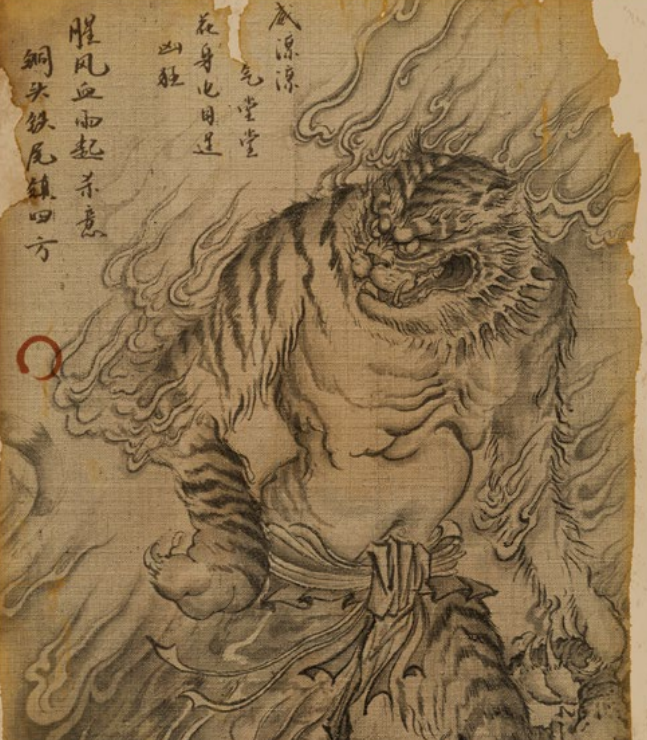 威凛凛
气堂堂
花身电目逞
凶狂
腥风血雨起杀意
铜头铁尾镇四方